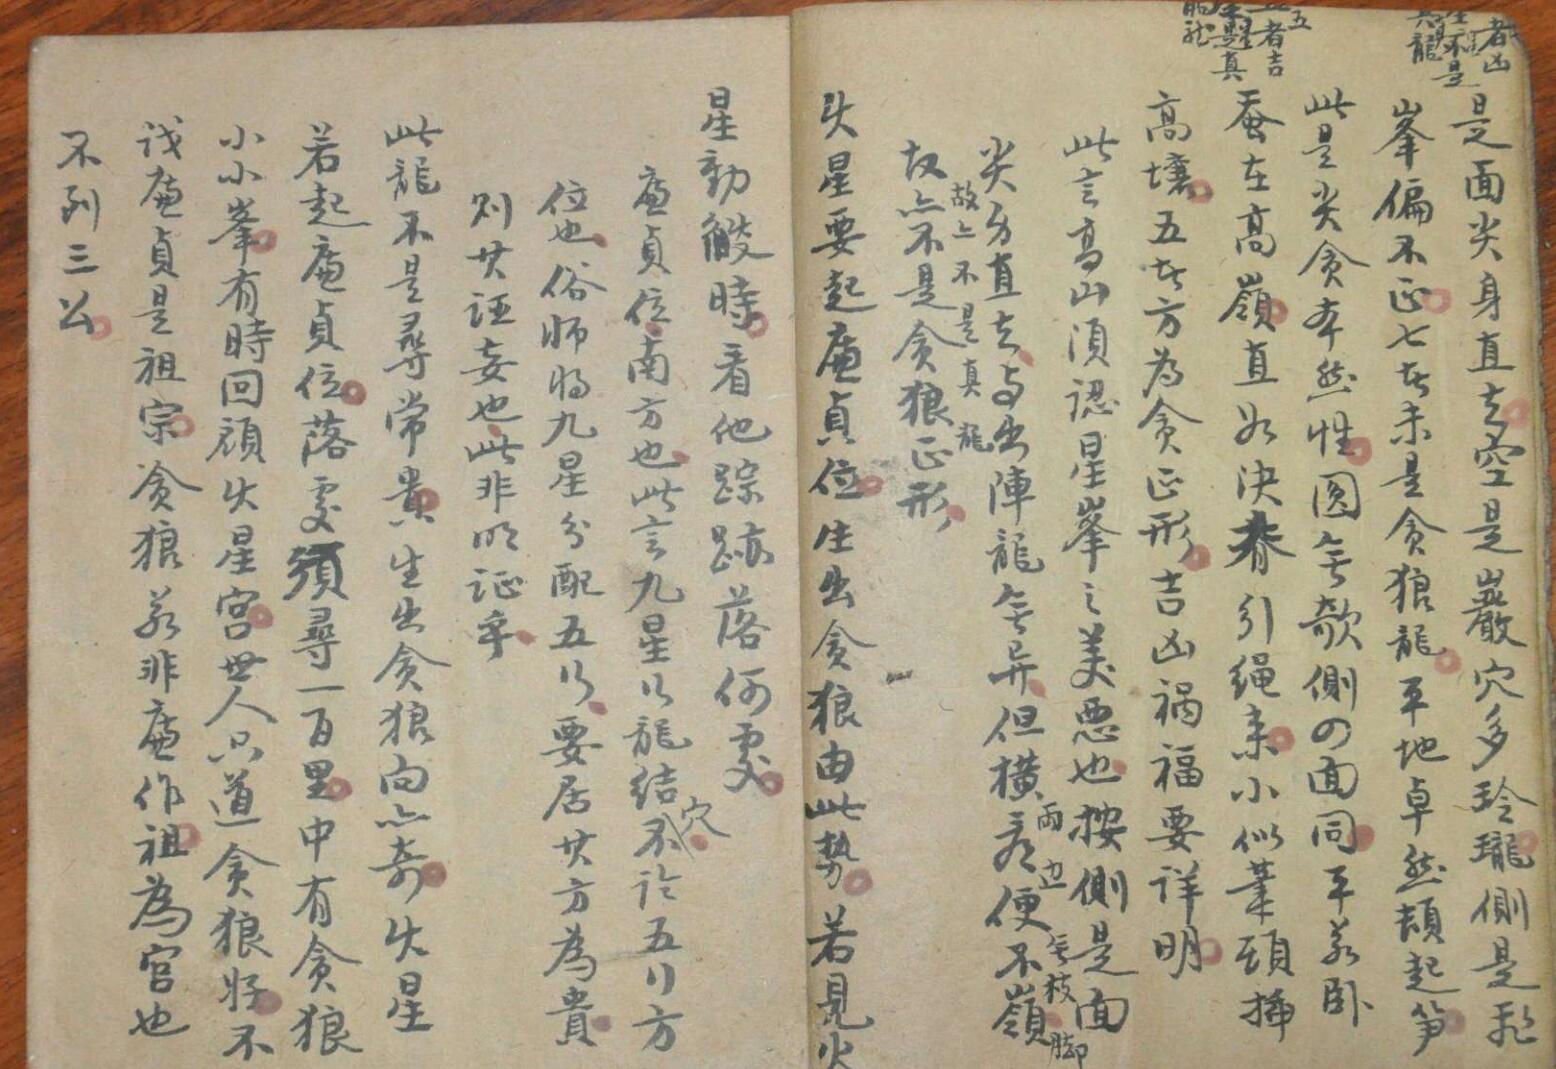 者凶
不是
龍
五
者吉
星是真
龍
是面尖身直去空是巖穴多玲瓏側是
峯偏不正七者未是貪狼龍平地卓然頓起笋
此是尖貪本然性圓無欹側四面同平若卧
蚕在高嶺直如決脊引绳來小似筆頭揷
高壤五者方為貪正形吉凶禍福要详明
此言高山須認星峯之美悪也按側是面
尖身直去与出陣龍無异但橫嶺便不嶺
两边無枝脚
故亦不是真龍
故亦不是貪狼正形
火星要起廉貞位生出貪狼由此势若見火
星動艘時看他踪跡落何處
廉貞位南方也此言九星行龍結穴不论五行方
位也俗师将九星分配五行要居其方為貴
则其诬妄也此非明证乎
此龍不是尋常貴生出貪狼向亦奇火星
若起廉貞位落處須尋一百里中有貪狼
小小峯有時回頋火星宫世人只道貪狼好不
识廉貞是祖宗貪狼若非廉作祖為官也
不到三公